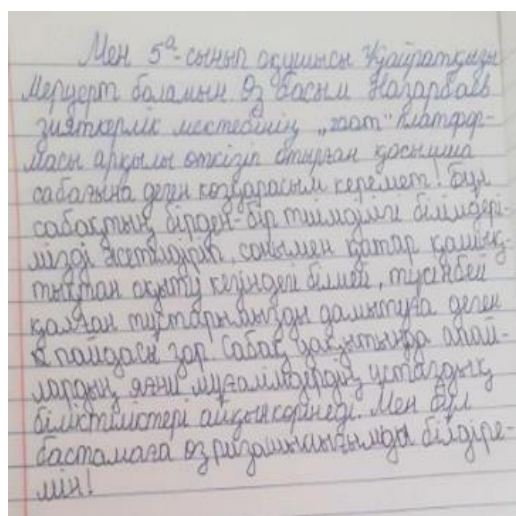 Мен 5ᵃ-сынып оқушысы Қайратқызы
Меруерт боламын Өз басым Назарбаев
зияткерлік мектебінің „zoom" платфор-
масы арқылы өткізіп отырған қосымша
сабағына деген көзқарасым керемет! Бұл
сабақтың бірден-бір тиімділігі білімдері-
мізді жетілдіріп, сонымен қатар қашық-
тықтан оқыту кезіндегі білмей, түсінбей
қалған тұстарымызды дамытуға деген
пайдасы зор Сабақ уақытында апай-
лардың яғни мұғалімдердің ұстаздық
біліктіліктері айқын көрінеді. Мен бұл
бастамаға өз ризашылығымды білдіре-
мін!